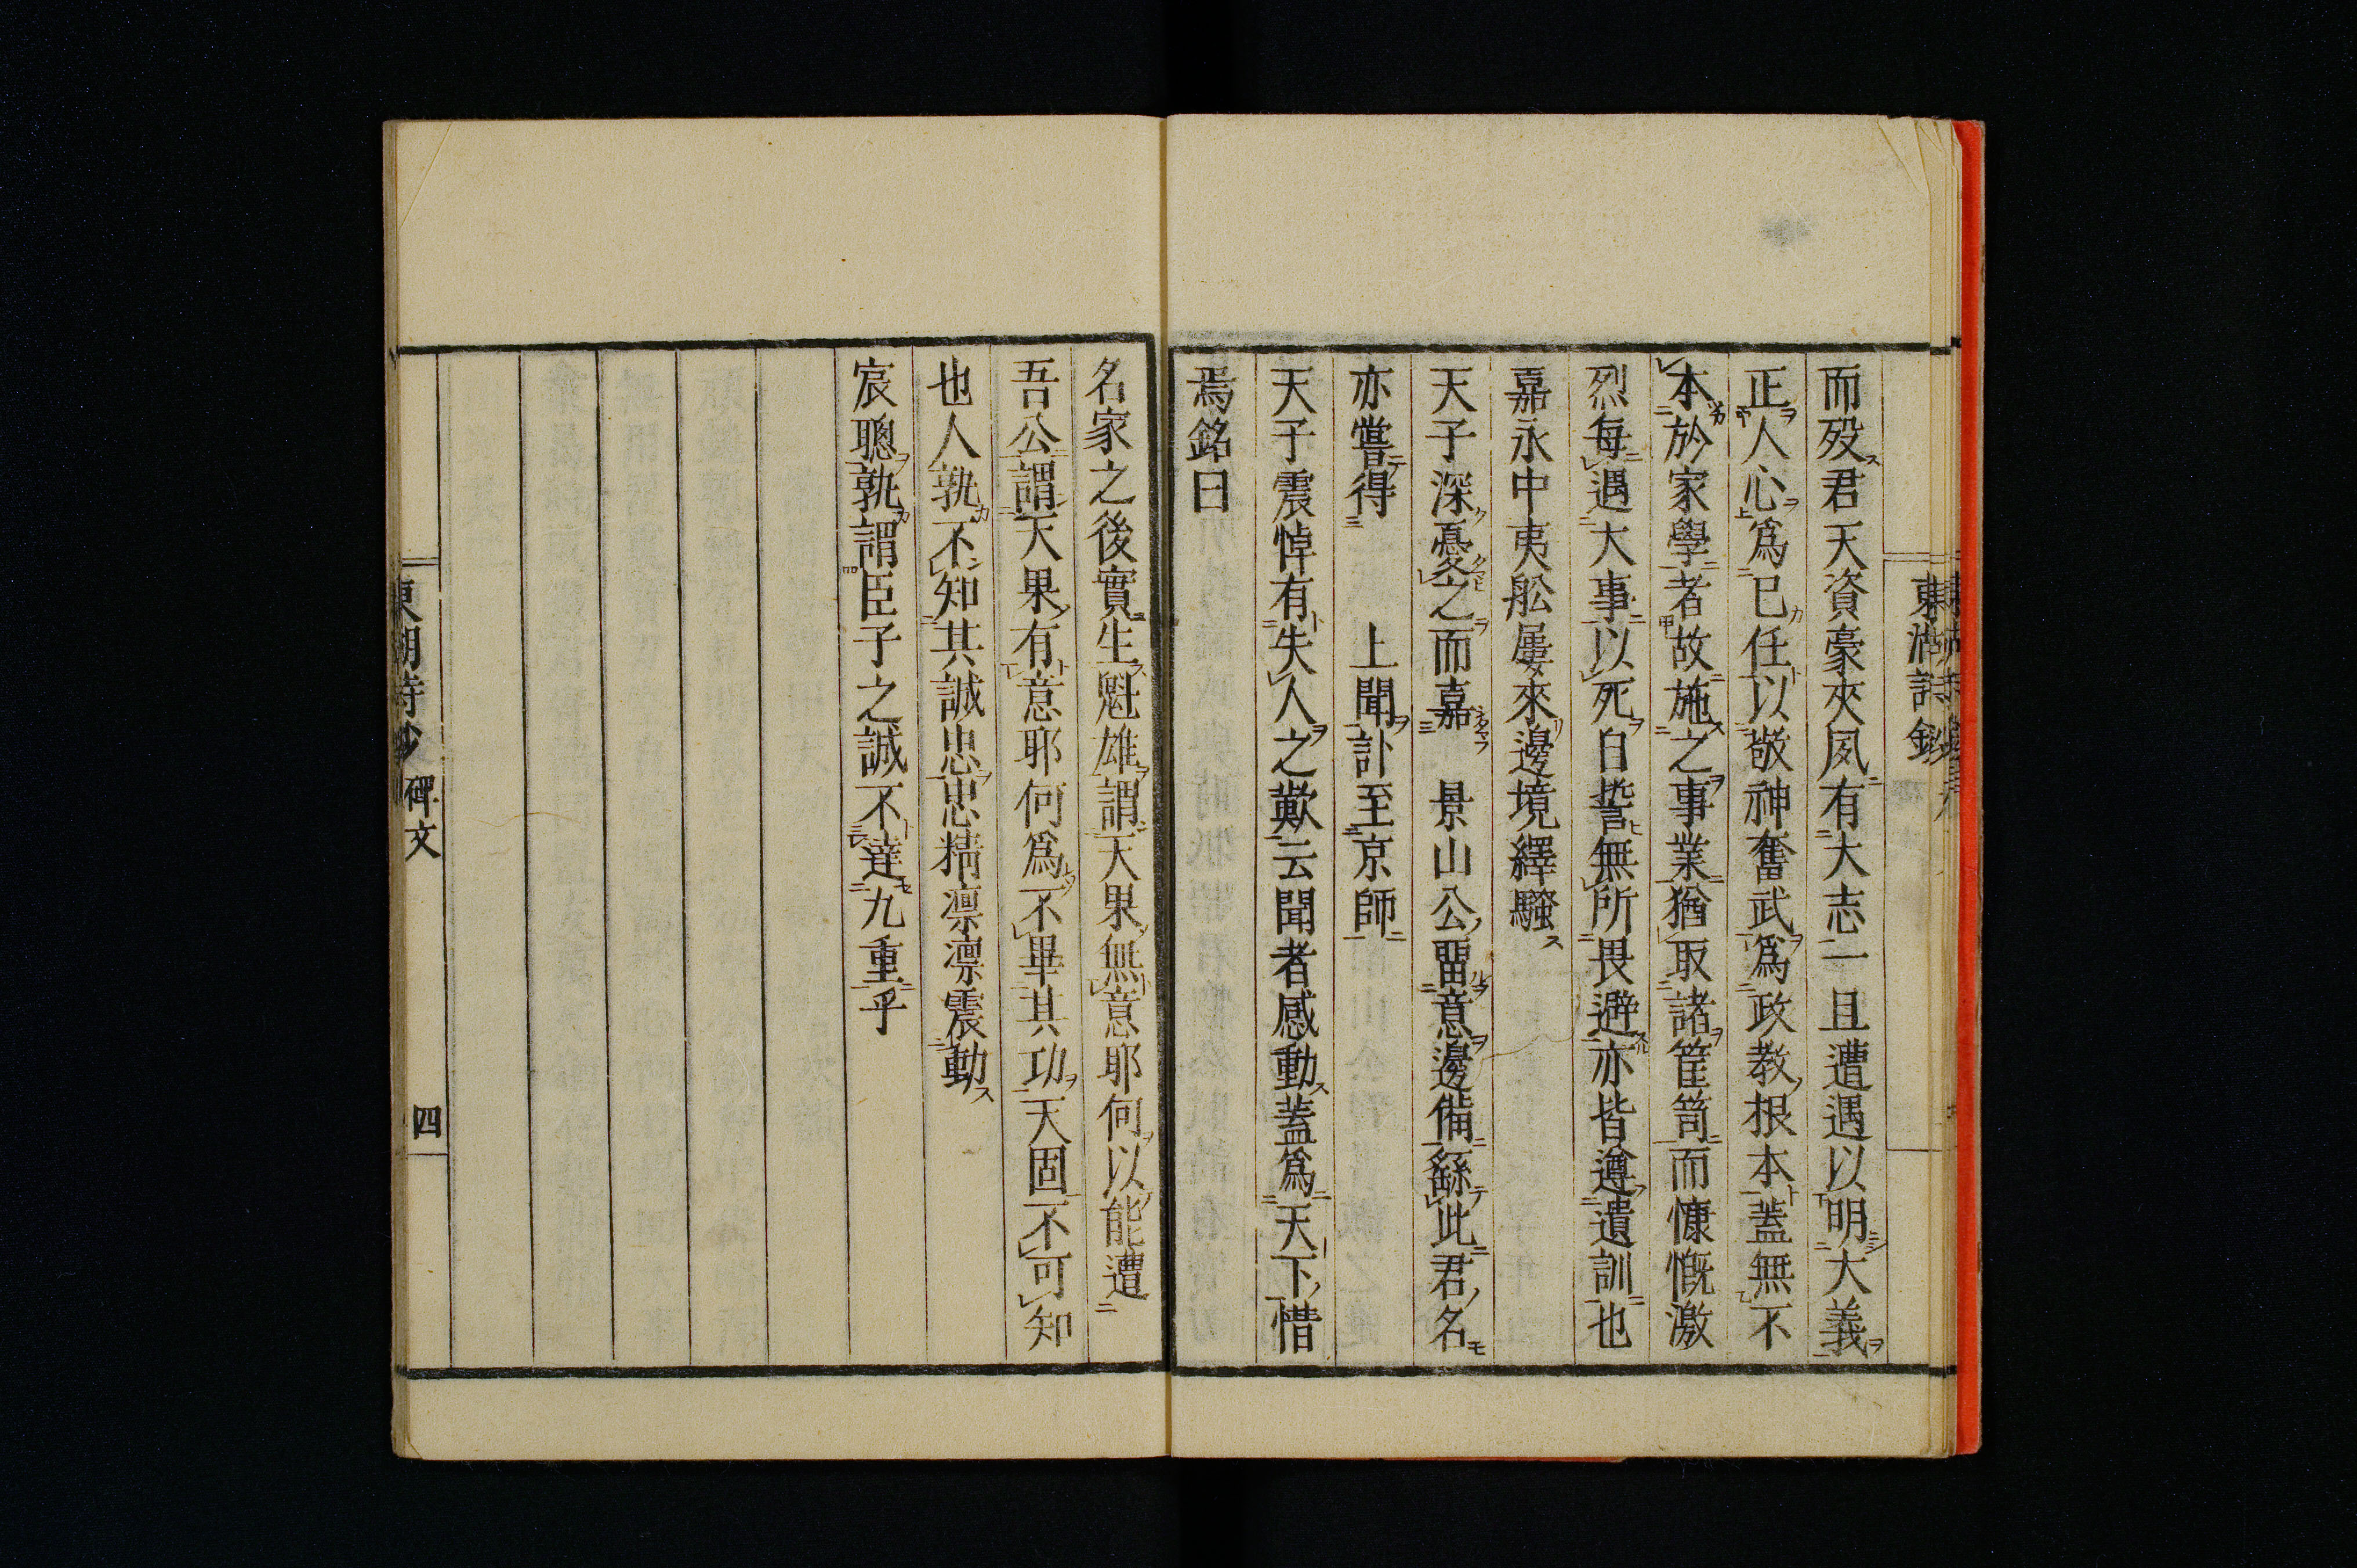 東湖詩鈔
而歿君天資豪夾夙有大志一且遭遇以明大義
正人心爲已任以敬神奮武爲政教根本蓋無不
本於家學者故施之事業猶取諸筐笥而慷慨激
烈每遇大事以死自誓無所畏避亦皆遵遺訓也
嘉永中夷舩屢來邊境繹騷
天子深憂之而嘉　景山公畱意邊備繇此君名
亦嘗得　上聞訃至京師
天子震悼有失人之歎云聞者感動蓋爲天下惜
焉銘曰
名家之後實生魁雄謂天果無意耶何以能遭
吾公謂天果有意耶何爲不畢其功天固不可知
也人孰不知其誠忠忠精凛凛震動
宸聰孰謂臣子之誠不達九重乎
東湖詩鈔　碑文　四